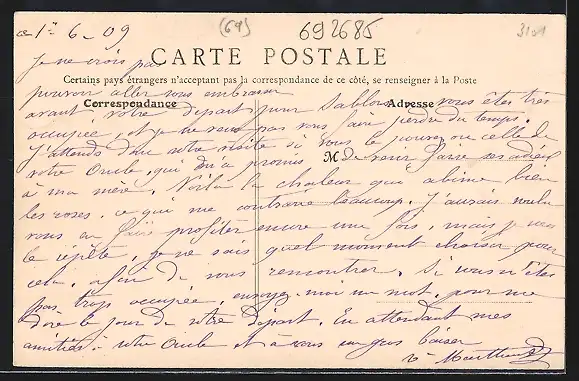 ce 1er 6-09
(69)
692685
3101
Je ne crois pas
CARTE POSTALE
Certains pays étrangers n'acceptant pas la correspondance de ce côté, se renseigner à la Poste
pouvoir aller vous embrasser
Correspondance
Adresse
avant votre départ pour Sablons vous êtes très
occupée, et je ne veux pas vous faire perdre du temps.
J'attends donc votre visite si vous le pouvez ou celle de
votre Oncle, qui m'a promis de venir faire ses adieux
M
à ma mère. Voilà la chaleur qui abîme bien
les roses, ce qui me contrarie beaucoup. J'aurais voulu
vous en faire profiter encore une fois, mais je vous
le répète, je ne sais quel moment choisir pour
cela, afin de vous rencontrer. Si vous n'êtes
pas trop occupée, envoyez moi un mot, pour me
dire le jour de votre départ. En attendant mes
amitiés à votre Oncle et à vous un gros baiser